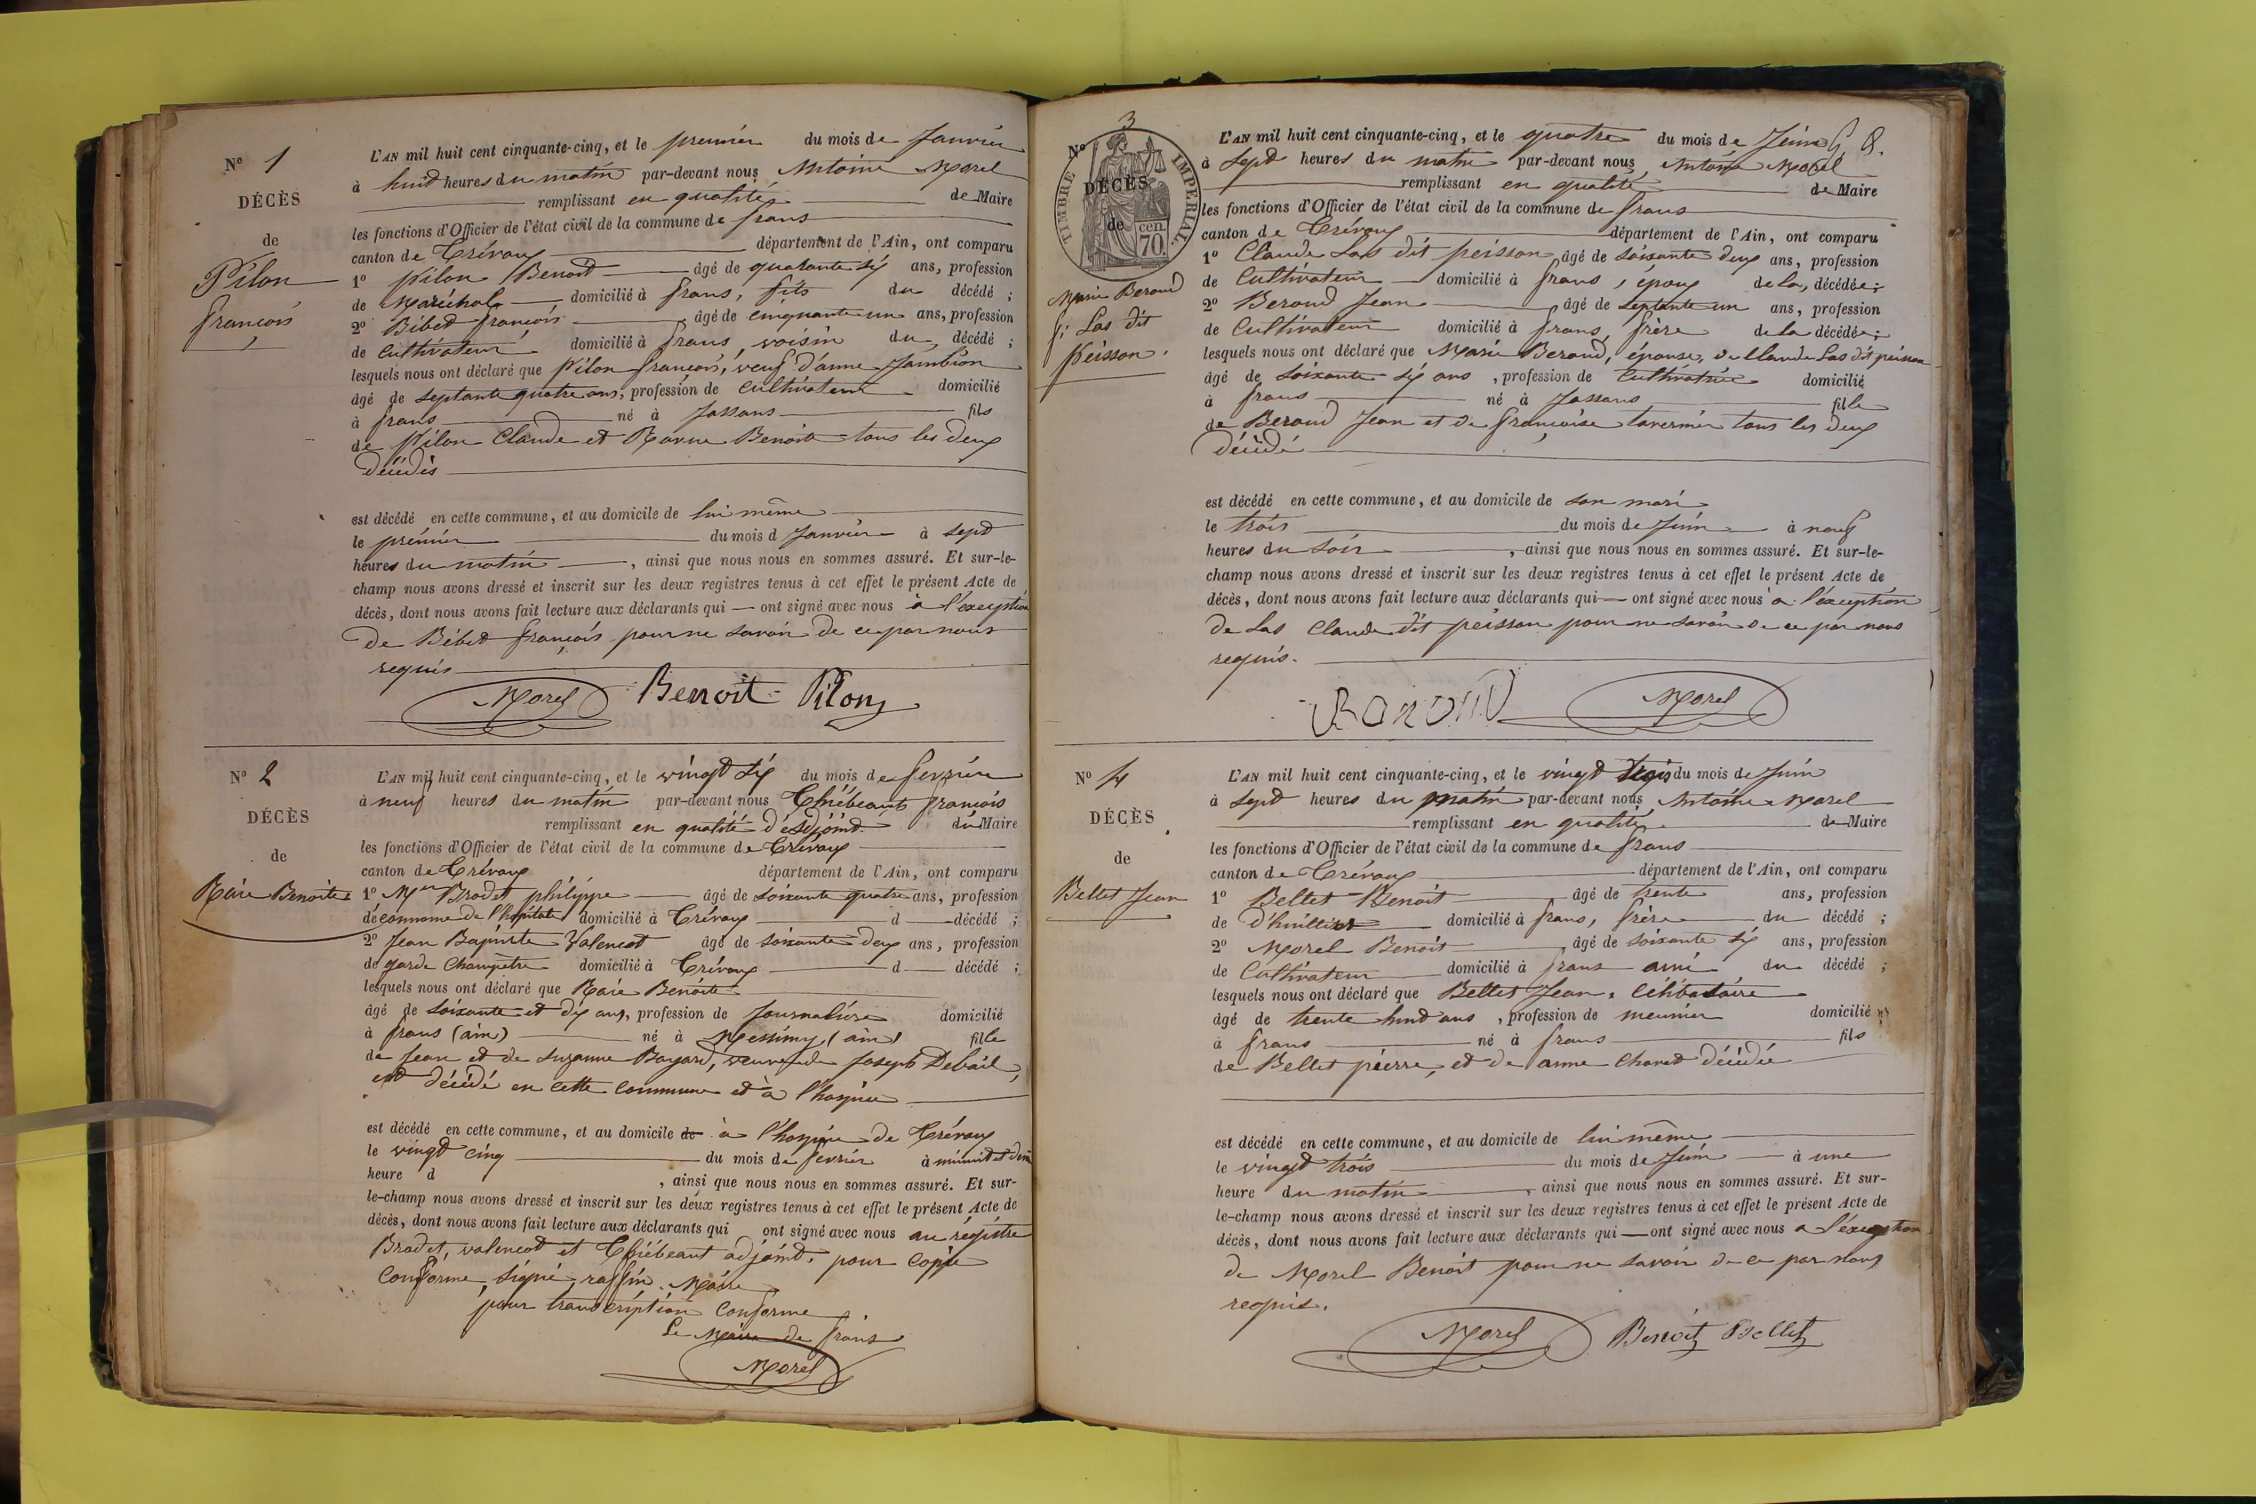 N° 1
DÉCÈS
de
Pilon
françois
L'AN mil huit cent cinquante-cinq, et le premier du mois de Janvier
à huit heures du matin par-devant nous Antoine Morel
remplissant en qualité de Maire
les fonctions d'Officier de l'état civil de la commune de frans
canton de Trévoux département de l'Ain, ont comparu
1° Pilon Benoit âgé de quarante six ans, profession
de Maréchal domicilié à frans, fils du décédé ;
2° Bibet françois âgé de cinquante un ans, profession
de cultivateur domicilié à frans, voisin du décédé ;
lesquels nous ont déclaré que Pilon françois, veuf d'anne Jambion
âgé de septante quatre ans, profession de cultivateur domicilié
à frans né à Jassans fils
de Pilon Claude et Benoite tous les deux
décédés
est décédé en cette commune, et au domicile de lui même
le prémier du mois d Janvier à sept
heures du matin, ainsi que nous nous en sommes assuré. Et sur-le-
champ nous avons dressé et inscrit sur les deux registres tenus à cet effet le présent Acte de
décès, dont nous avons fait lecture aux déclarants qui — ont signé avec nous à l'exception
de Bibet françois pour ne savoir de ce par nous
requis
Morel Benoit Pilon
N° 2
DÉCÈS
de
Raie Benoite
L'AN mil huit cent cinquante-cinq, et le vingt six du mois de fevrier
à neuf heures du matin par-devant nous Thiébeaut françois
remplissant en qualité d'adjoint du Maire
les fonctions d'Officier de l'état civil de la commune de Trévoux
canton de Trévoux département de l'Ain, ont comparu
1° Brodet philippe âgé de soixante quatre ans, profession
de économe de l'hopital domicilié à Trévoux d décédé ;
2° Jean Baptiste Valencot âgé de soixante deux ans, profession
de garde champêtre domicilié à Trévoux d décédé ;
lesquels nous ont déclaré que Raie Benoite
âgé de soixante et dix ans, profession de Journalière domicilié
à frans (ain) né à Messimy (ain) fille
de Jean et de Suzanne Bayard, veuve de Joseph Debail,
est décédé en cette commune et à l'hospice
est décédé en cette commune, et au domicile de à l'hospice de Trévoux
le vingt cinq du mois de fevrier à minuit et demi
heure d , ainsi que nous nous en sommes assuré. Et sur-
le-champ nous avons dressé et inscrit sur les deux registres tenus à cet effet le présent Acte de
décès, dont nous avons fait lecture aux déclarants qui ont signé avec nous au régistre
Brodet, valencot et Thiébeaut adjoint. pour copie
conforme, signé, raffin Maire
pour transcription conforme
Le Maire de frans
Morel
N° 3
TIMBRE IMPERIAL
cen 70.
DÉCÈS
de
Marie Beroud
f. Las dit
Peisson.
L'AN mil huit cent cinquante-cinq, et le quatre du mois de Juin
à sept heures du matin par-devant nous Antoine Morel
remplissant en qualité de Maire
les fonctions d'Officier de l'état civil de la commune de frans
canton de Trévoux département de l'Ain, ont comparu
1° Claude Las dit peisson âgé de soixante deux ans, profession
de Cultivateur domicilié à frans, époux de la décédée ;
2° Beroud Jean âgé de septante un ans, profession
de Cultivateur domicilié à frans, frère de la décédée ;
lesquels nous ont déclaré que Marie Beroud, épouse de Claude Las dit peisson
âgé de soixante six ans, profession de Cultivatrice domicilié
à frans né à Jassans fille
de Beroud Jean et de françoise tavernier tous les deux
décédé
est décédé en cette commune, et au domicile de son mari
le trois du mois de Juin à neuf
heures du soir, ainsi que nous nous en sommes assuré. Et sur-le-
champ nous avons dressé et inscrit sur les deux registres tenus à cet effet le présent Acte de
décès, dont nous avons fait lecture aux déclarants qui — ont signé avec nous a l'éxception
de Las Claude dit peisson pour ne savoir de ce par nous
requis.
Morel
N° 4
DÉCÈS
de
Bellet Jean
L'AN mil huit cent cinquante-cinq, et le vingt trois du mois de Juin
à sept heures du matin par-devant nous Antoine Morel
remplissant en qualité de Maire
les fonctions d'Officier de l'état civil de la commune de frans
canton de Trévoux département de l'Ain, ont comparu
1° Bellet Benoit âgé de trente ans, profession
de d'huillier domicilié à frans, frère du décédé ;
2° Morel Benoit âgé de soixante six ans, profession
de Cultivateur domicilié à frans ami du décédé ;
lesquels nous ont déclaré que Bellet Jean, Célibataire
âgé de trente huit ans, profession de meunier domicilié
à frans né à frans fils
de Bellet pierre, et de anne Chanet décédée
est décédé en cette commune, et au domicile de lui même
le vingt trois du mois de Juin à une
heure du matin, ainsi que nous nous en sommes assuré. Et sur-
le-champ nous avons dressé et inscrit sur les deux registres tenus à cet effet le présent Acte de
décès, dont nous avons fait lecture aux déclarants qui — ont signé avec nous a l'éxception
de Morel Benoit pour ne savoir de ce par nous
requis.
Morel Benoit Bellet